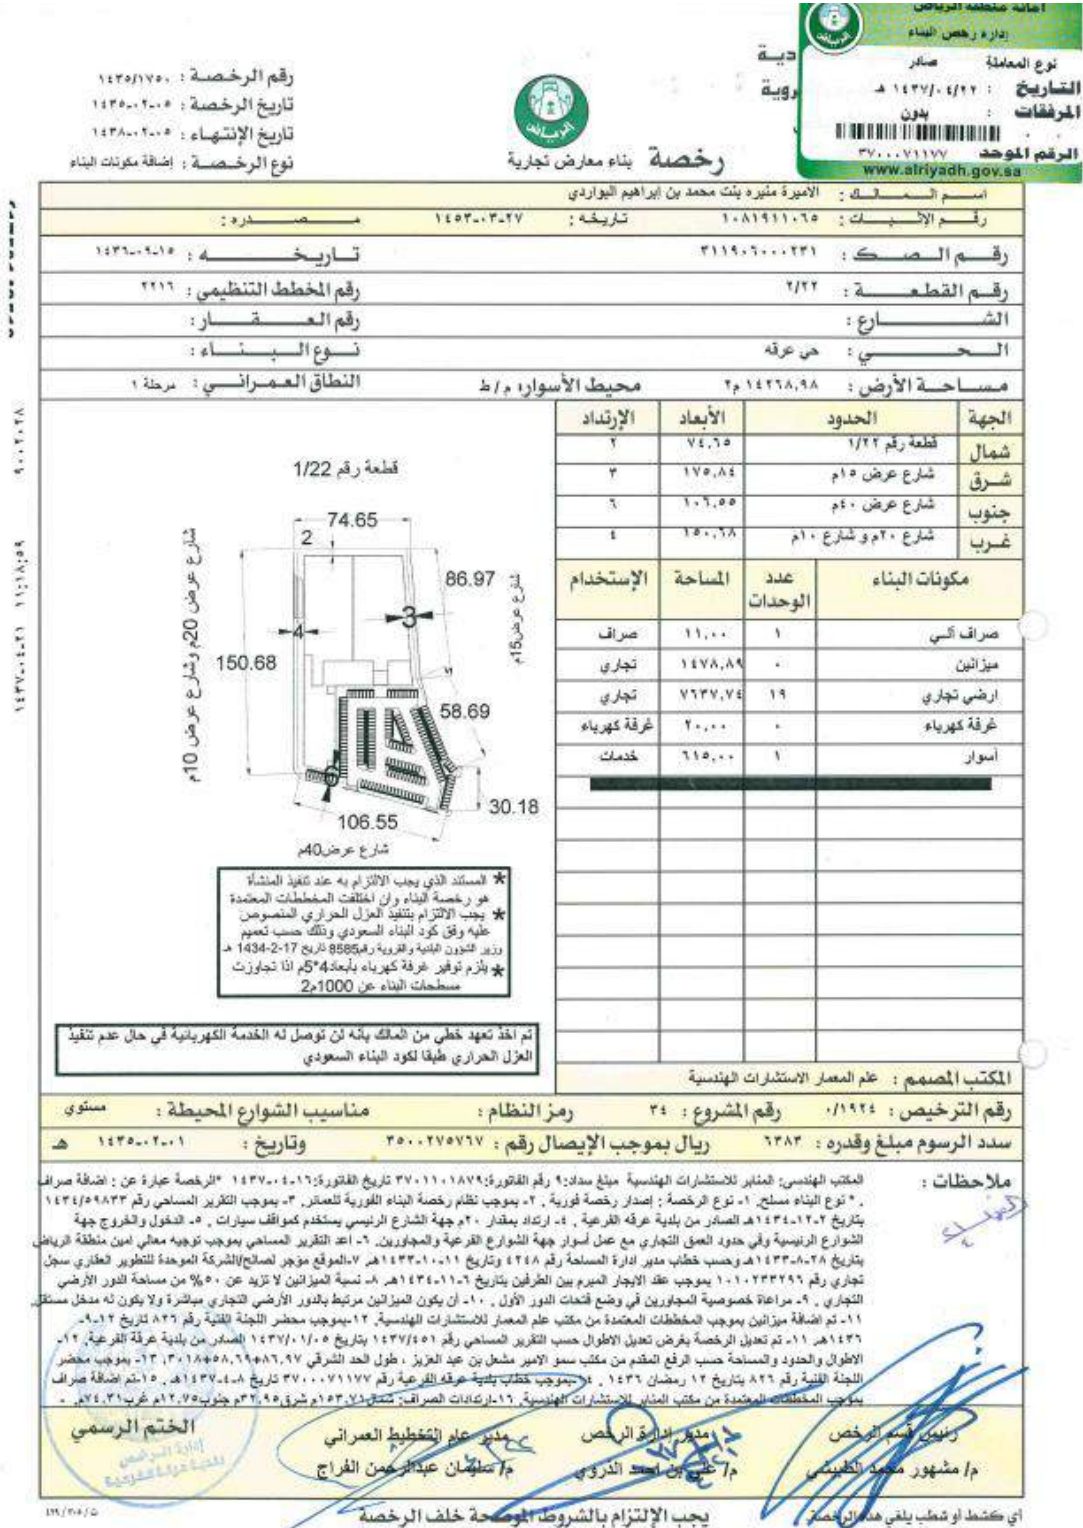 امانة منطقة الرياض
إدارة رخص البناء
نوع المعاملة صادر
التاريخ : ١٤٣٧/٠٤/٢٢ هـ
المرفقات : بدون
الرقم الموحد ٣٧٠٠٠٧١١٧٧
www.alriyadh.gov.sa
دية
روية
الرياض
رخصة بناء معارض تجارية
رقم الرخصة : ١٤٣٥/١٧٥٠
تاريخ الرخصة : ١٤٣٥-٠٢-٠٥
تاريخ الإنتهاء : ١٤٣٨-٠٢-٠٥
نوع الرخصة : إضافة مكونات البناء
اسم المالك : الاميرة منيره بنت محمد بن إبراهيم البواردي
رقم الإثبات : ١٠٨١٩١١٠٦٥ تاريخه : ١٤٥٣-٠٣-٢٧ مصدره :
رقم الصك : ٣١١٩٠٦٠٠٠٢٣١ تاريخه : ١٤٣٦-٠٩-١٥
رقم القطعة : ٢/٢٢ رقم المخطط التنظيمي : ٢٢١٦
الشارع : رقم العقار :
الحي : حي عرقه نوع البناء :
مساحة الأرض : ١٤٢٦٨,٩٨ م٢ محيط الأسوار: م / ط النطاق العمراني : مرحلة ١
الجهة الحدود الأبعاد الإرتداد
شمال قطعة رقم ١/٢٢ ٧٤,٦٥ ٢
شرق شارع عرض ١٥م ١٧٥,٨٤ ٣
جنوب شارع عرض ٤٠م ١٠٦,٥٥ ٦
غرب شارع ٢٠م و شارع ١٠م ١٥٠,٦٨ ٤
مكونات البناء عدد الوحدات المساحة الإستخدام
صراف آلي ١ ١١,٠٠ صراف
ميزانين ٠ ١٤٧٨,٨٩ تجاري
ارضي تجاري ١٩ ٧٦٣٧,٧٤ تجاري
غرفة كهرباء ٠ ٢٠,٠٠ غرفة كهرباء
أسوار ١ ٦١٥,٠٠ خدمات
قطعة رقم 1/22
74.65
2
86.97
3
4
شارع عرض15م
150.68
58.69
شارع عرض 20م وشارع عرض 10م
6
30.18
106.55
شارع عرض40م
* المستند الذي يجب الالتزام به عند تنفيذ المنشأة
هو رخصة البناء وان اختلفت المخططات المعتمدة
* يجب الالتزام بتنفيذ العزل الحراري المنصوص
عليه وفق كود البناء السعودي وذلك حسب تعميم
وزير الشؤون البلدية والقروية رقم8585 تاريخ 17-2-1434 هـ
* يلزم توفير غرفة كهرباء بأبعاد4*5م اذا تجاوزت
مسطحات البناء عن 1000م2
تم اخذ تعهد خطي من المالك بأنه لن توصل له الخدمة الكهربائية في حال عدم تنفيذ
العزل الحراري طبقا لكود البناء السعودي
المكتب المصمم : علم المعمار الاستشارات الهندسية
رقم الترخيص : ٠/١٩٢٤ رقم المشروع : ٣٤ رمز النظام : مناسيب الشوارع المحيطة : مستوي
سدد الرسوم مبلغ وقدره : ٦٣٨٣ ريال بموجب الإيصال رقم : ٣٥٠٠٢٧٥٧٦٧ وتاريخ : ١٤٣٥-٠٢-٠١ هـ
ملاحظات : المكتب الهندسي: المنابر للاستشارات الهندسية مبلغ سداد:٩ رقم الفاتورة:٣٧٠١١٠١٨٧٩ تاريخ الفاتورة:١٦-٠٤-١٤٣٧ *الرخصة عبارة عن : اضافة صراف
. * نوع البناء مسلح. ١- نوع الرخصة : إصدار رخصة فورية . ٢- بموجب نظام رخصة البناء الفورية للعمائر. ٣- بموجب التقرير المساحي رقم ١٤٣٤/٥٩٨٣٣
بتاريخ ٢-١٢-١٤٣٤هـ الصادر من بلدية عرقه الفرعية . ٤- ارتداد بمقدار ٢٠م جهة الشارع الرئيسي يستخدم كمواقف سيارات . ٥- الدخول والخروج جهة
الشوارع الرئيسية وفي حدود العمق التجاري مع عمل أسوار جهة الشوارع الفرعية والمجاورين. ٦- اعد التقرير المساحي بموجب توجيه معالي امين منطقة الرياض
بتاريخ ٢٨-٨-١٤٣٣هـ وحسب خطاب مدير ادارة المساحة رقم ٤٢٤٨ وتاريخ ١١-١٠-١٤٣٣هـ ٧-الموقع مؤجر لصالح/الشركة الموحدة للتطوير العقاري سجل
تجاري رقم ١٠١٠٢٣٣٢٩٦ بموجب عقد الايجار المبرم بين الطرفين بتاريخ ٦-١١-١٤٣٤هـ ٨- نسبة الميزانين لا تزيد عن ٥٠% من مساحة الدور الأرضي
التجاري . ٩- مراعاة خصوصية المجاورين في وضع فتحات الدور الأول . ١٠- أن يكون الميزانين مرتبط بالدور الأرضي التجاري مباشرة ولا يكون له مدخل مستقل.
١١- تم اضافة ميزانين بموجب المخططات المعتمدة من مكتب علم المعمار للاستشارات الهندسية. ١٢-بموجب محضر اللجنة الفنية رقم ٨٢٦ تاريخ ١٢-٩-
١٤٣٦هـ ١١- تم تعديل الرخصة بغرض تعديل الاطوال حسب التقرير المساحي رقم ١٤٣٧/٤٥١ بتاريخ ١٤٣٧/٠١/٠٥ الصادر من بلدية عرقة الفرعية. ١٢-
الاطوال والحدود والمساحة حسب الرفع المقدم من مكتب سمو الامير مشعل بن عبد العزيز ، طول الحد الشرقي ٨٦,٩٧+٥٨,٦٩+٣٠,١٨. ١٣- بموجب محضر
اللجنة الفنية رقم ٨٢٦ بتاريخ ١٢ رمضان ١٤٣٦ . بموجب خطاب بلدية عرقه الفرعية رقم ٣٧٠٠٠٧١١٧٧ تاريخ ٨-٤-١٤٣٧هـ . ١٥-تم اضافة صراف
بموجب المخططات المعتمدة من مكتب المنابر للاستشارات الهندسية. ١٦-ارتدادات الصراف: شمال١٥٣,٧١م شرق٣٢,٩٥م جنوب١٢,٧٥م غرب٧٤,٣١م. -
رئيس قسم الرخص مدير إدارة الرخص مدير عام التخطيط العمراني الختم الرسمي
م/ مشهور محمد الطبيشي م/ علي بن احمد الدروي م/ سليمان عبدالرحمن الفراج
أي كشط أو شطب يلغي هذه الرخصة يجب الإلتزام بالشروط الموضحة خلف الرخصة
١٤٣٧-٠٤-٢١ ١١:١٨:٥٩ ٩٠٠٢٠٢٨